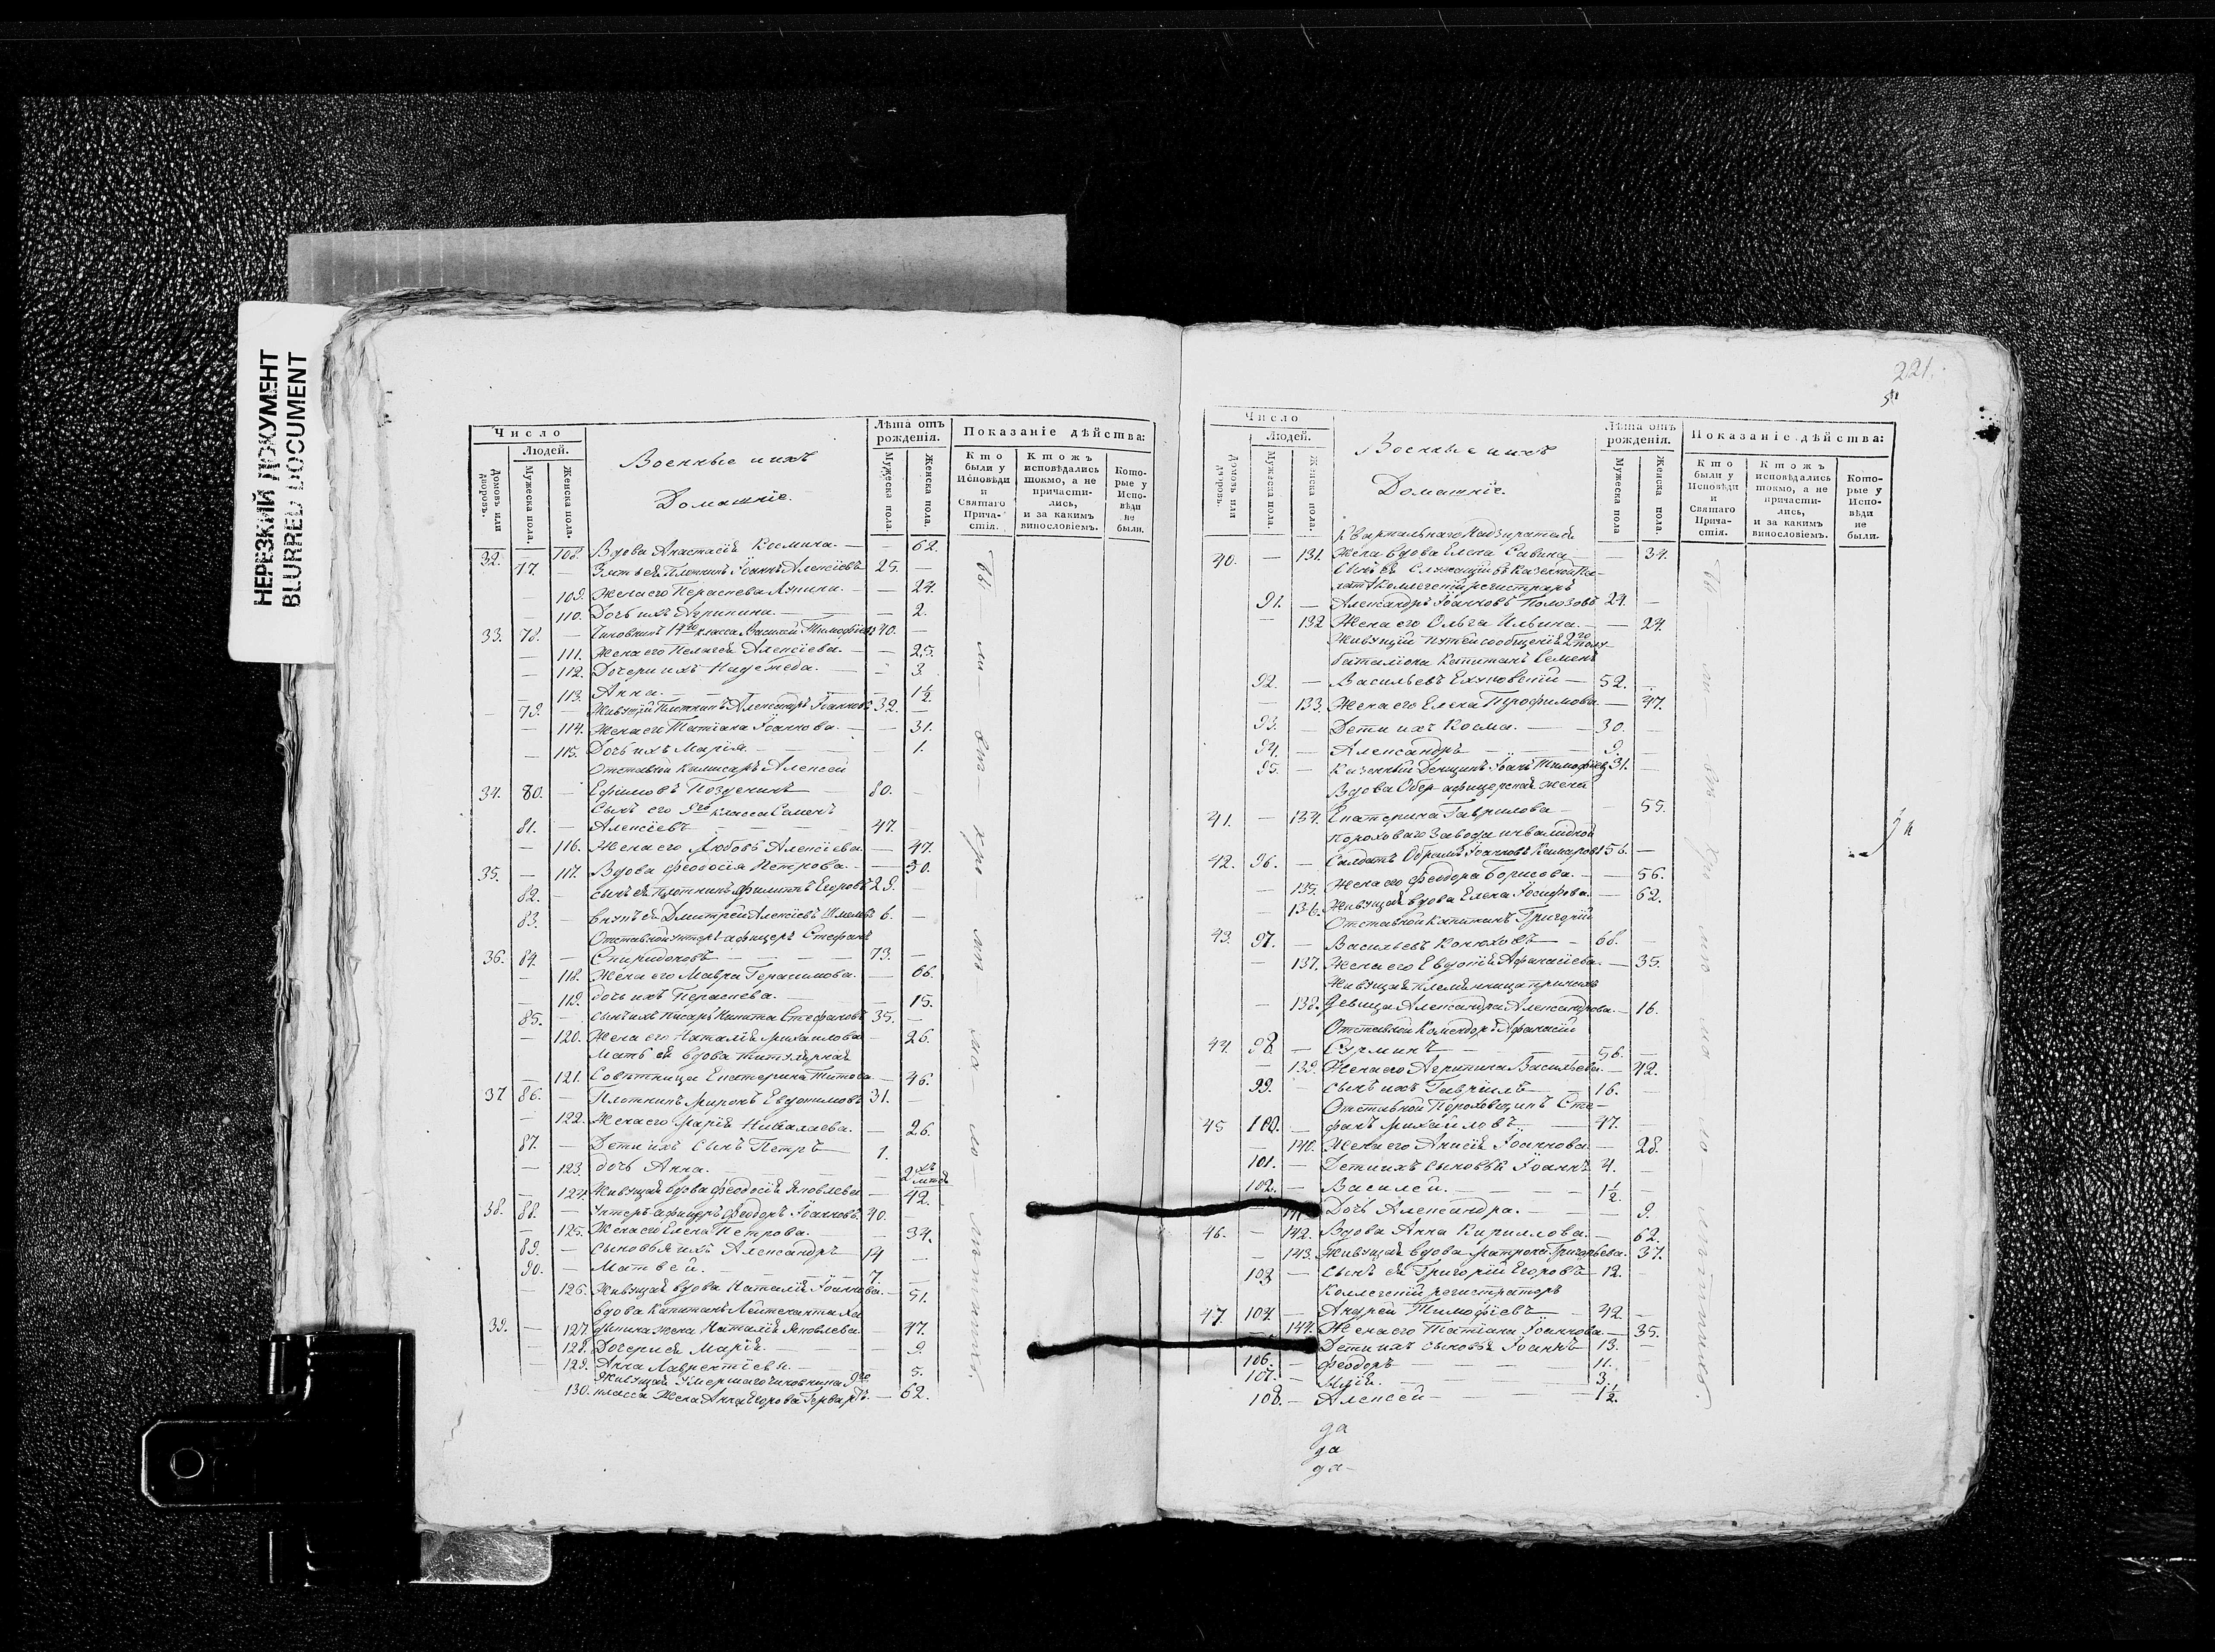 НЕРЕЗКИЙ ДОКУМЕНТ
BLURRED DOCUMENT
Число
Людей.
Домовъ или дворовъ.
Мужеска пола.
Женска пола.
Военные и ихъ
Домашніе.
Лѣта отъ рожденія.
Мужеска пола.
Женска пола.
Показаніе дѣйства:
Кто были у Исповѣди и Святаго Причастія.
Ктожъ исповѣдались токмо, а не причастились, и за какимъ винословіемъ.
Которые у Исповѣди не были.
32. — 108. Вдова Анастасія Космина. — — 62.
77. — Зять ея Плотникъ Іоаннъ Алексіевъ 25. —
— 109. Жена его Параскева Лукина. — — 24.
— 110. Дочь ихъ Агрипина. — — 2.
33. 78. — Чиновникъ 14го класса Василій Тимофіевъ 40. —
— 111. Жена его Пелагея Алексіева. — — 25.
— 112. Дочери ихъ Надежда. — — 3.
— 113. Анна. — — 1½
— 79. — Живущій Плотникъ Александръ Іоанновъ 32. —
— 114. Жена его Татіана Іоаннова. — — 31.
— 115. Дочь ихъ Марія. — — 1.
Отставной Комисаръ Алексей
34. 80. — Ефимовъ Позденинъ 80. —
Сынъ его 9го класса Семенъ
81. — Алексіевъ — — 47.
— 116. Жена его Любовь Алексіева. — 47.
35. — 117. Вдова Феодосія Петрова. — — 50.
82. — сынъ ея Плотникъ Филиппъ Егоровъ 29. —
83. — внукъ ея Дмитрей Алексіевъ 6. —
Отставной унтеръ-афицеръ Стефанъ
36. 84. — Спиридоновъ — — 73. —
— 118. Жена его Мавра Герасимова. — 66.
— 119. дочь ихъ Параскева. — — 15.
85. — сынъ ихъ Писарь Никита Стефановъ 35. —
— 120. Жена его Наталія Михаилова — 26.
Мать ея вдова титулярная
— 121. Совѣтница Екатерина Титова — 46.
37. 86. — Плотникъ Миронъ Евдокимовъ 31. —
— 122. Жена его Марія Николаева. — 26.
87. — Дети ихъ Сынъ Петръ — 1.
— 123. дочь Анна. — — 2хъ
— 124. Живущая вдова Феодосія Яковлева — 42.
38. 88. — Унтеръ афицеръ Феодоръ Іоанновъ. 40.
— 125. Жена его Елена Петрова. — 34.
89. — Сыновья ихъ Александръ 14 —
90. — Матвей. — — 7. —
— 126. Живущая вдова Наталія Іоаннова. — 51.
вдова Капитанъ Лейтенанта Хо
39. — 127. дыкина жена Наталія Яковлева — 47.
— 128. Дочери ея Марія. — 9.
— 129. Анна Лаврентіевы. — 5.
Живущая Умершаго чиновника 9го
130. класса Жена Анна Егорова — 62.
221.
Число
Людей.
Домовъ или дворовъ.
Мужеска пола.
Женска пола.
Военные и ихъ
Домашніе.
Лѣта отъ рожденія.
Мужеска пола
Женска пола.
Показаніе дѣйства:
Кто были у Исповѣди и Святаго Причастія.
Ктожъ исповѣдались токмо, а не причастились, и за какимъ винословіемъ.
Которые у Исповѣди не были.
Квартальнаго Надзирателя
40. — 131. Жена вдова Елена Савина — 34.
Сынъ ея Служащій въ Казенной Па-
лате Коллегскій регистраръ
91. — Александръ Іоанновъ Полозовъ 24. —
— 132 Жена его Ольга Ильина. — — 24.
Живущій путей сообщенія 2го полу-
баталіона Капитанъ Семенъ
92. — Васильевъ — 52. —
— 133. Жена его Елена Трофимова. — 47.
93. — Дети ихъ Косма. — 30. —
94. — Александръ — — 9. —
95. — Казенный Денщикъ Іоанъ Тимофіевъ 31. —
Вдова Обер-афицерская жена
41. — 134. Екатерина Гаврилова — — 55.
Пороховаго Завода инвалидной
42. 96. — Салдатъ Іоанновъ Комаровъ 56. —
— 135. Жена его Феодора Борисова. — — 56.
— 136. Живущая вдова Елена Іосифова. — 62.
Отставной Капитанъ Григорій
43. 97. — Васильевъ Конюховъ — 68. —
— 137. Жена его Евдокія Афанасіева. — 35.
Живущая племянница
— 138. девица Александра Александрова. — 16.
Отставной Комендоръ Афанасій
44. 98. — Сурминъ — 56. —
— 139. Жена его Агрипина Васильева. — 42.
99. — сынъ ихъ Гавріилъ — 16. —
Отставной Пороховщикъ Сте-
45 100. — фанъ Михайловъ — 47. —
— 140. Жена его Анисія Іоаннова. — 28.
101. — Дети ихъ сыновья Іоаннъ 4. —
102. — Василей. — — 1½. —
Дочь Александра. — — 9.
46. — 142. Вдова Анна Кириллова. — 62.
— 143. Живущая вдова Матрона Григорьева. 37.
103 — сынъ ея Григорій Егоровъ — 12. —
Коллегскій регистраторъ
47. 104. — Андрей Тимофіевъ — 42. —
144. Жена его Татіана Іоаннова. — 35.
Дети ихъ сыновья Іоаннъ — 13. —
106. — Феодоръ — 11. —
107. — Илія. — 3. —
108. — Алексей — 1½.
да
да
да